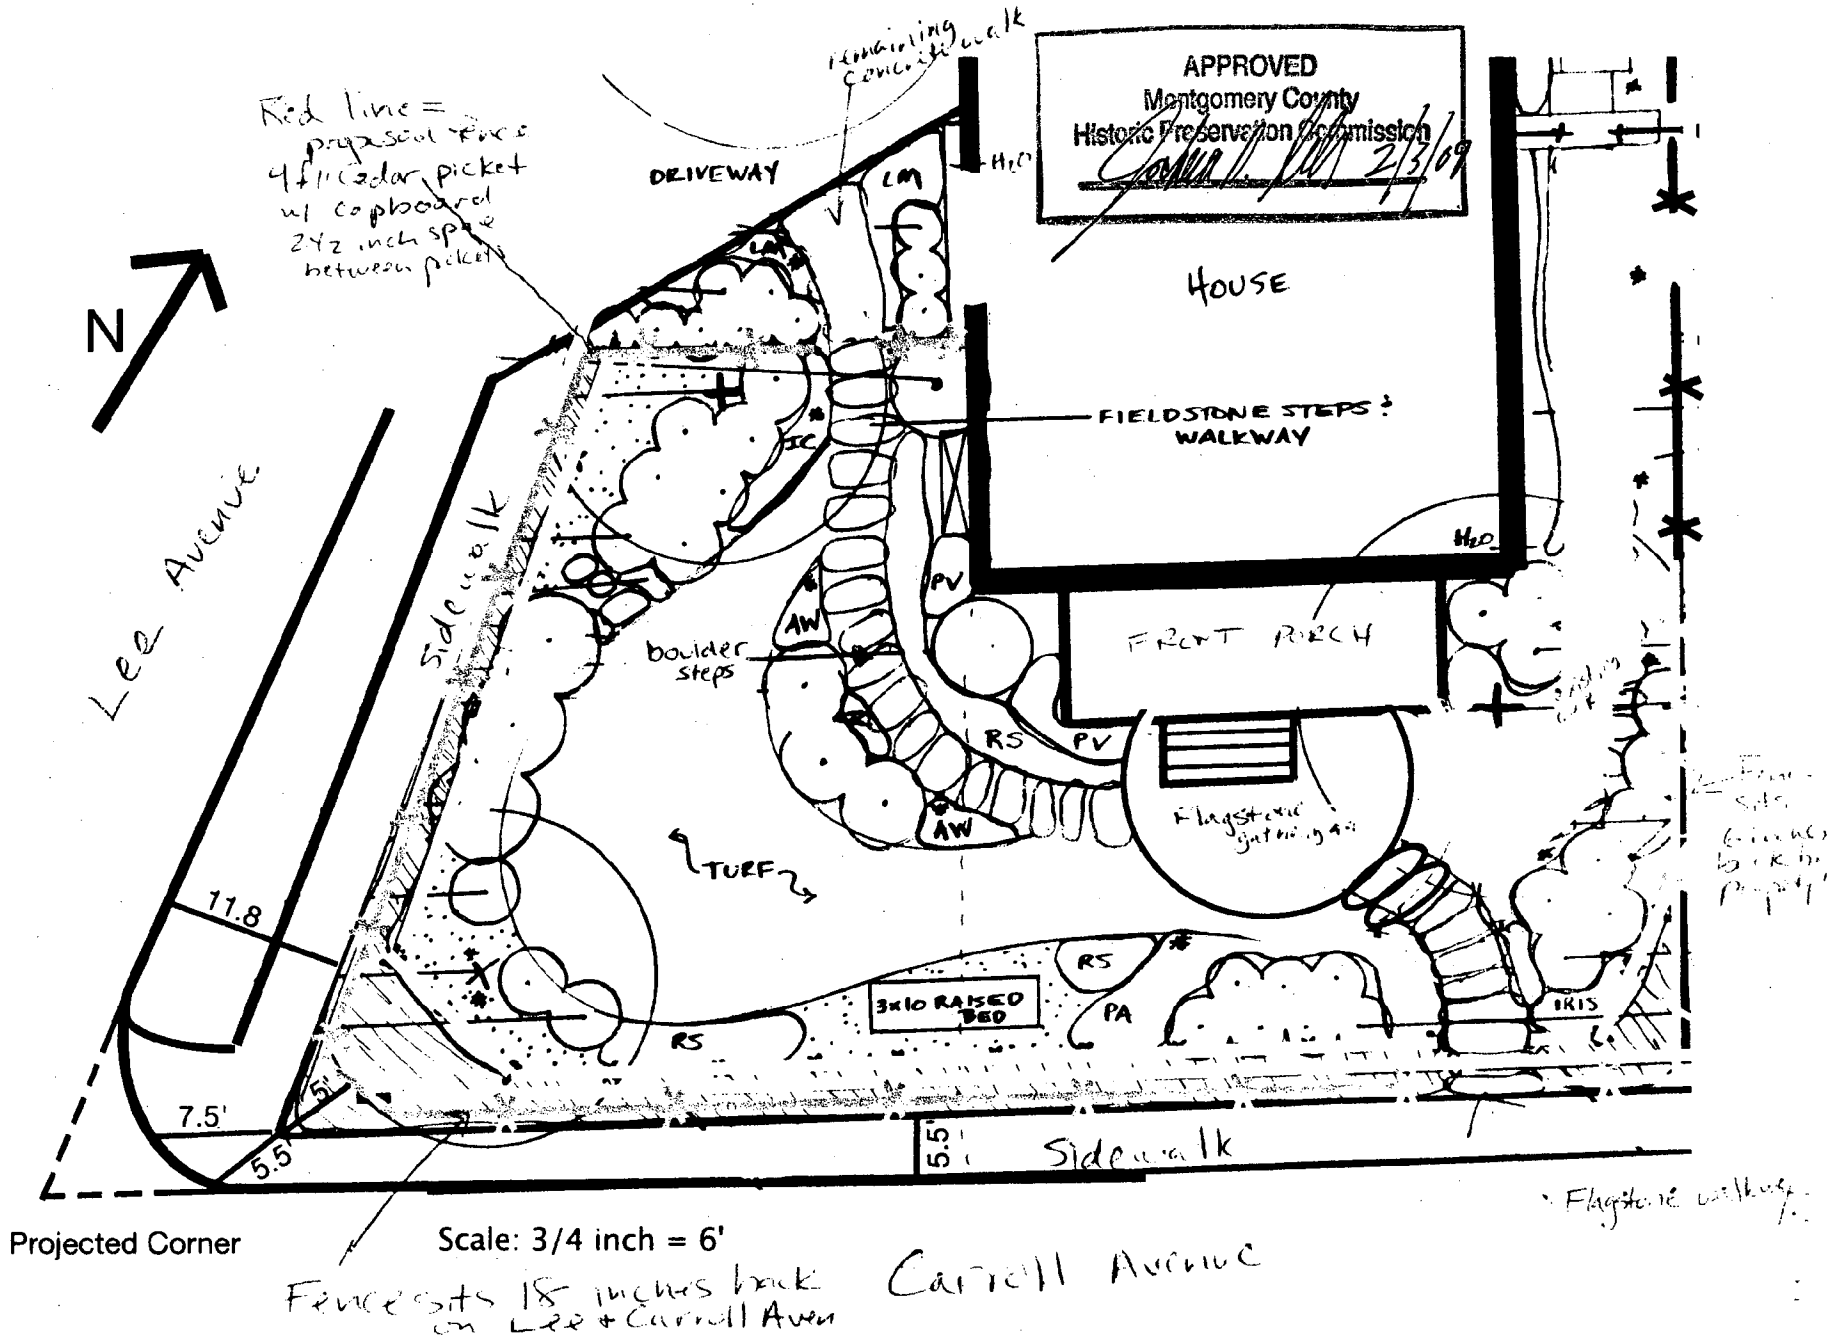 remaining
concrete walk
APPROVED
Montgomery County
Historic Preservation Commission
2/3/09
Red line =
proposed fence
4 ft. cedar picket
w/ capboard
2 1/2 inch space
between pickets
DRIVEWAY
LM
H2O
LM
N
HOUSE
FIELDSTONE STEPS &
WALKWAY
IC
Lee Avenue
Sidewalk
H2O
PV
AW
FRONT PORCH
boulder
steps
RS
PV
AW
Flagstone
gathering
TURF
Fence
sits
back
property
11.8
RS
3x10 RAISED
BED
PA
IRIS
RS
5'
7.5'
5.5'
5.5'
Sidewalk
Flagstone walkway
Projected Corner
Scale: 3/4 inch = 6'
Carroll Avenue
Fence sits 18 inches back
on Lee + Carroll Aven